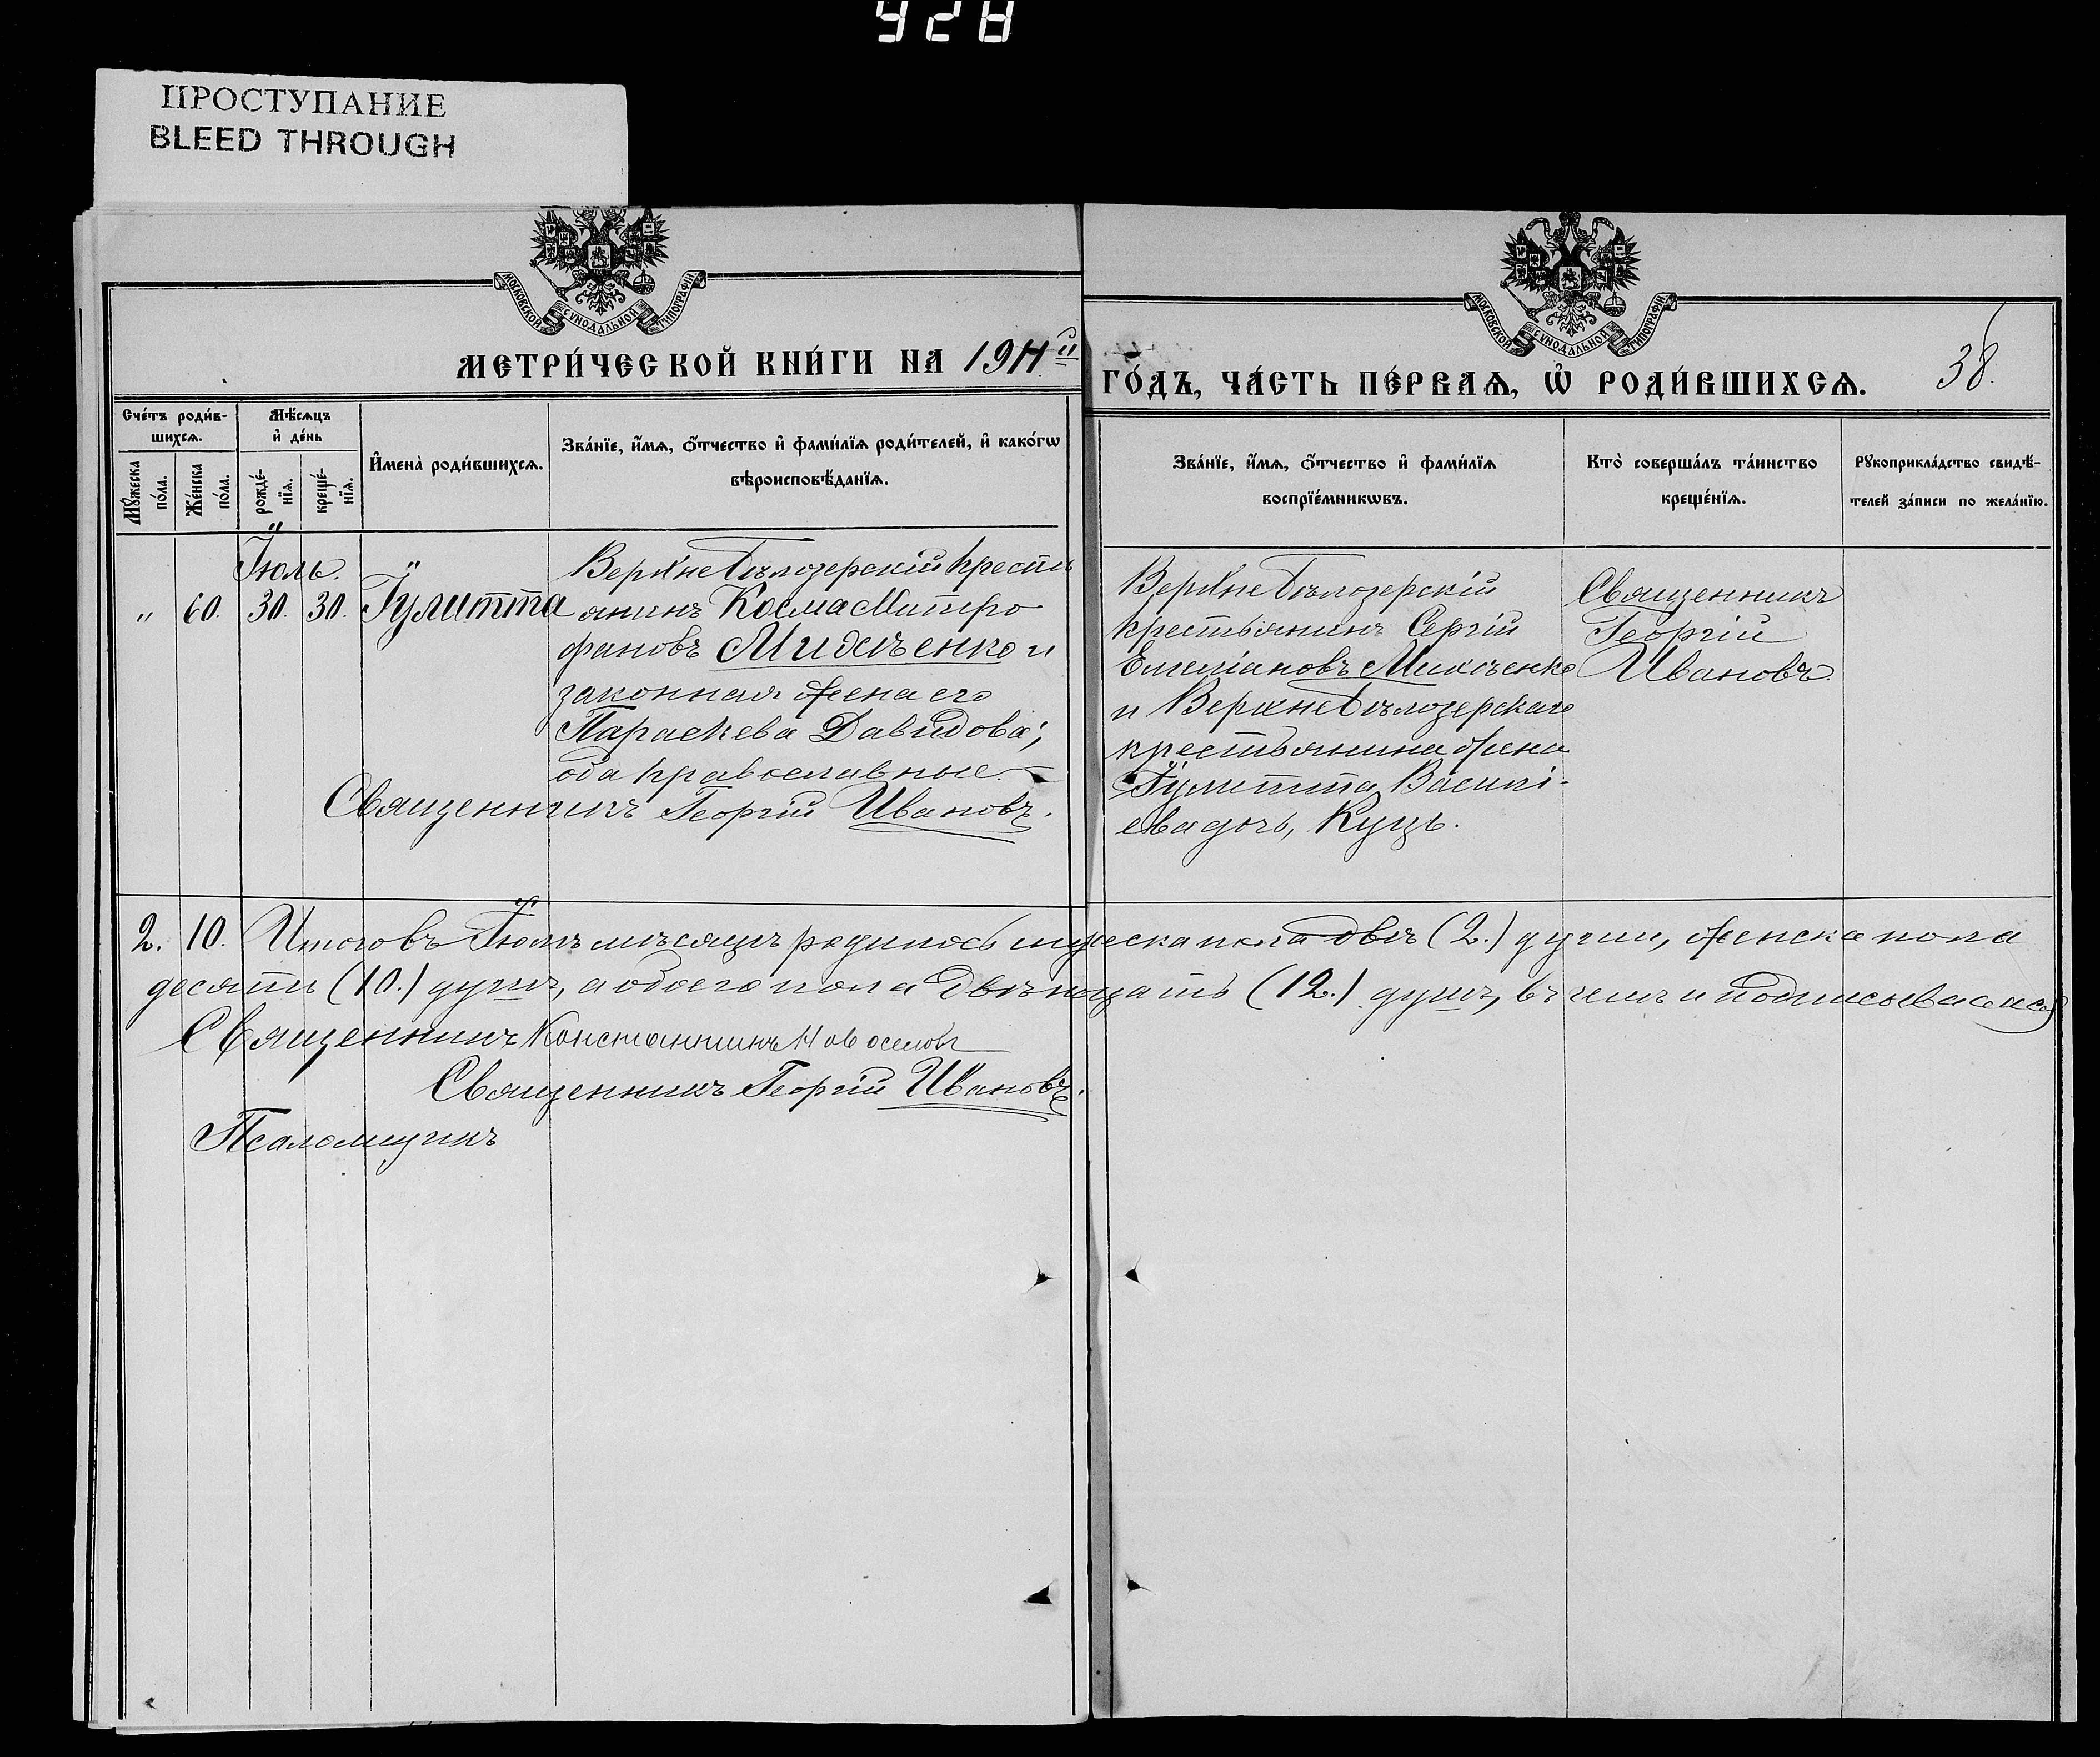 928
ПРОСТУПАНИЕ
BLEED THROUGH
МОСКОВСКОЙ СѴНОДАЛЬНОЙ ТИПОГРАФІИ
МОСКОВСКОЙ СѴНОДАЛЬНОЙ ТИПОГРАФІИ
МЕТРИ́ЧЕСКОЙ КНИ́ГИ НА 1911й
ГО́ДЪ, ЧА́СТЬ ПЕ́РВАѦ, Ѡ҆ РОДИ́ВШИХСѦ. 38.
Сче́тъ роди́в-
шихсѧ.
Мѣ́сѧцъ
и҆ де́нь
Мꙋ́жеска
по́ла.
Же́нска
по́ла.
рожде́-
нїѧ.
креще́-
нїѧ.
И҆мена̀ роди́вшихсѧ.
Зва́нїе, и҆́мѧ, ѻ҆́тчество и҆ фами́лїѧ роди́телей, и҆ како́гѡ
вѣроисповѣ́данїѧ.
Зва́нїе, и҆́мѧ, ѻ҆́тчество и҆ фами́лїѧ
воспрїе́мникѡвъ.
Кто̀ соверша́лъ та́инство
креще́нїѧ.
Рꙋкоприкла́дство свидѣ́-
телей за́писи по жела́нїю.
Іюль.
" 60. 30. 30. Іулитта
ВерхнеБѣлозерскій кресть
янинъ Косма Митро
фановъ Михѣенко и
законная жена его
Параскева Давидова;
оба православные.
Священникъ Георгій Ивановъ.
ВерхнеБѣлозерскій
крестьянинъ Сергій
Емеліановъ Михѣенко
и ВерхнеБѣлозерскаго
крестьянина жена
Іулитта Василі-
ева дочь, Куцъ.
Священникъ
Георгій
Ивановъ.
2. 10. Итого въ Іюлѣ мѣсяцѣ родилось мужеска пола двѣ (2.) души, женска пола
десять (10.) душъ, а обоего пола двѣнадцать (12.) душъ, въ чемъ и подписываемся
Священникъ Константинъ Новоселовъ
Священникъ Георгій Ивановъ.
Псаломщикъ